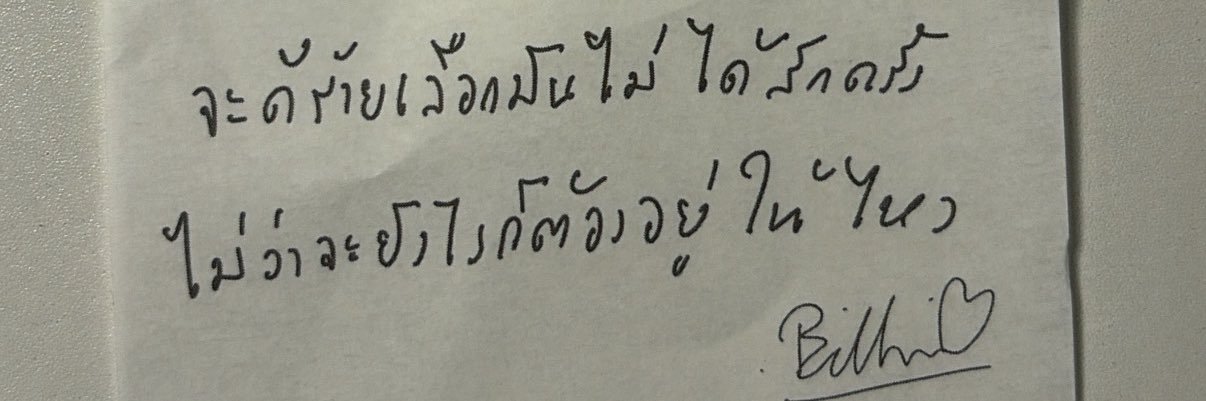 จะดีร้ายเลือกมันไม่ได้สักครั้ง
ไม่ว่าจะยังไงก็ต้องอยู่ให้ไหว
Billkin